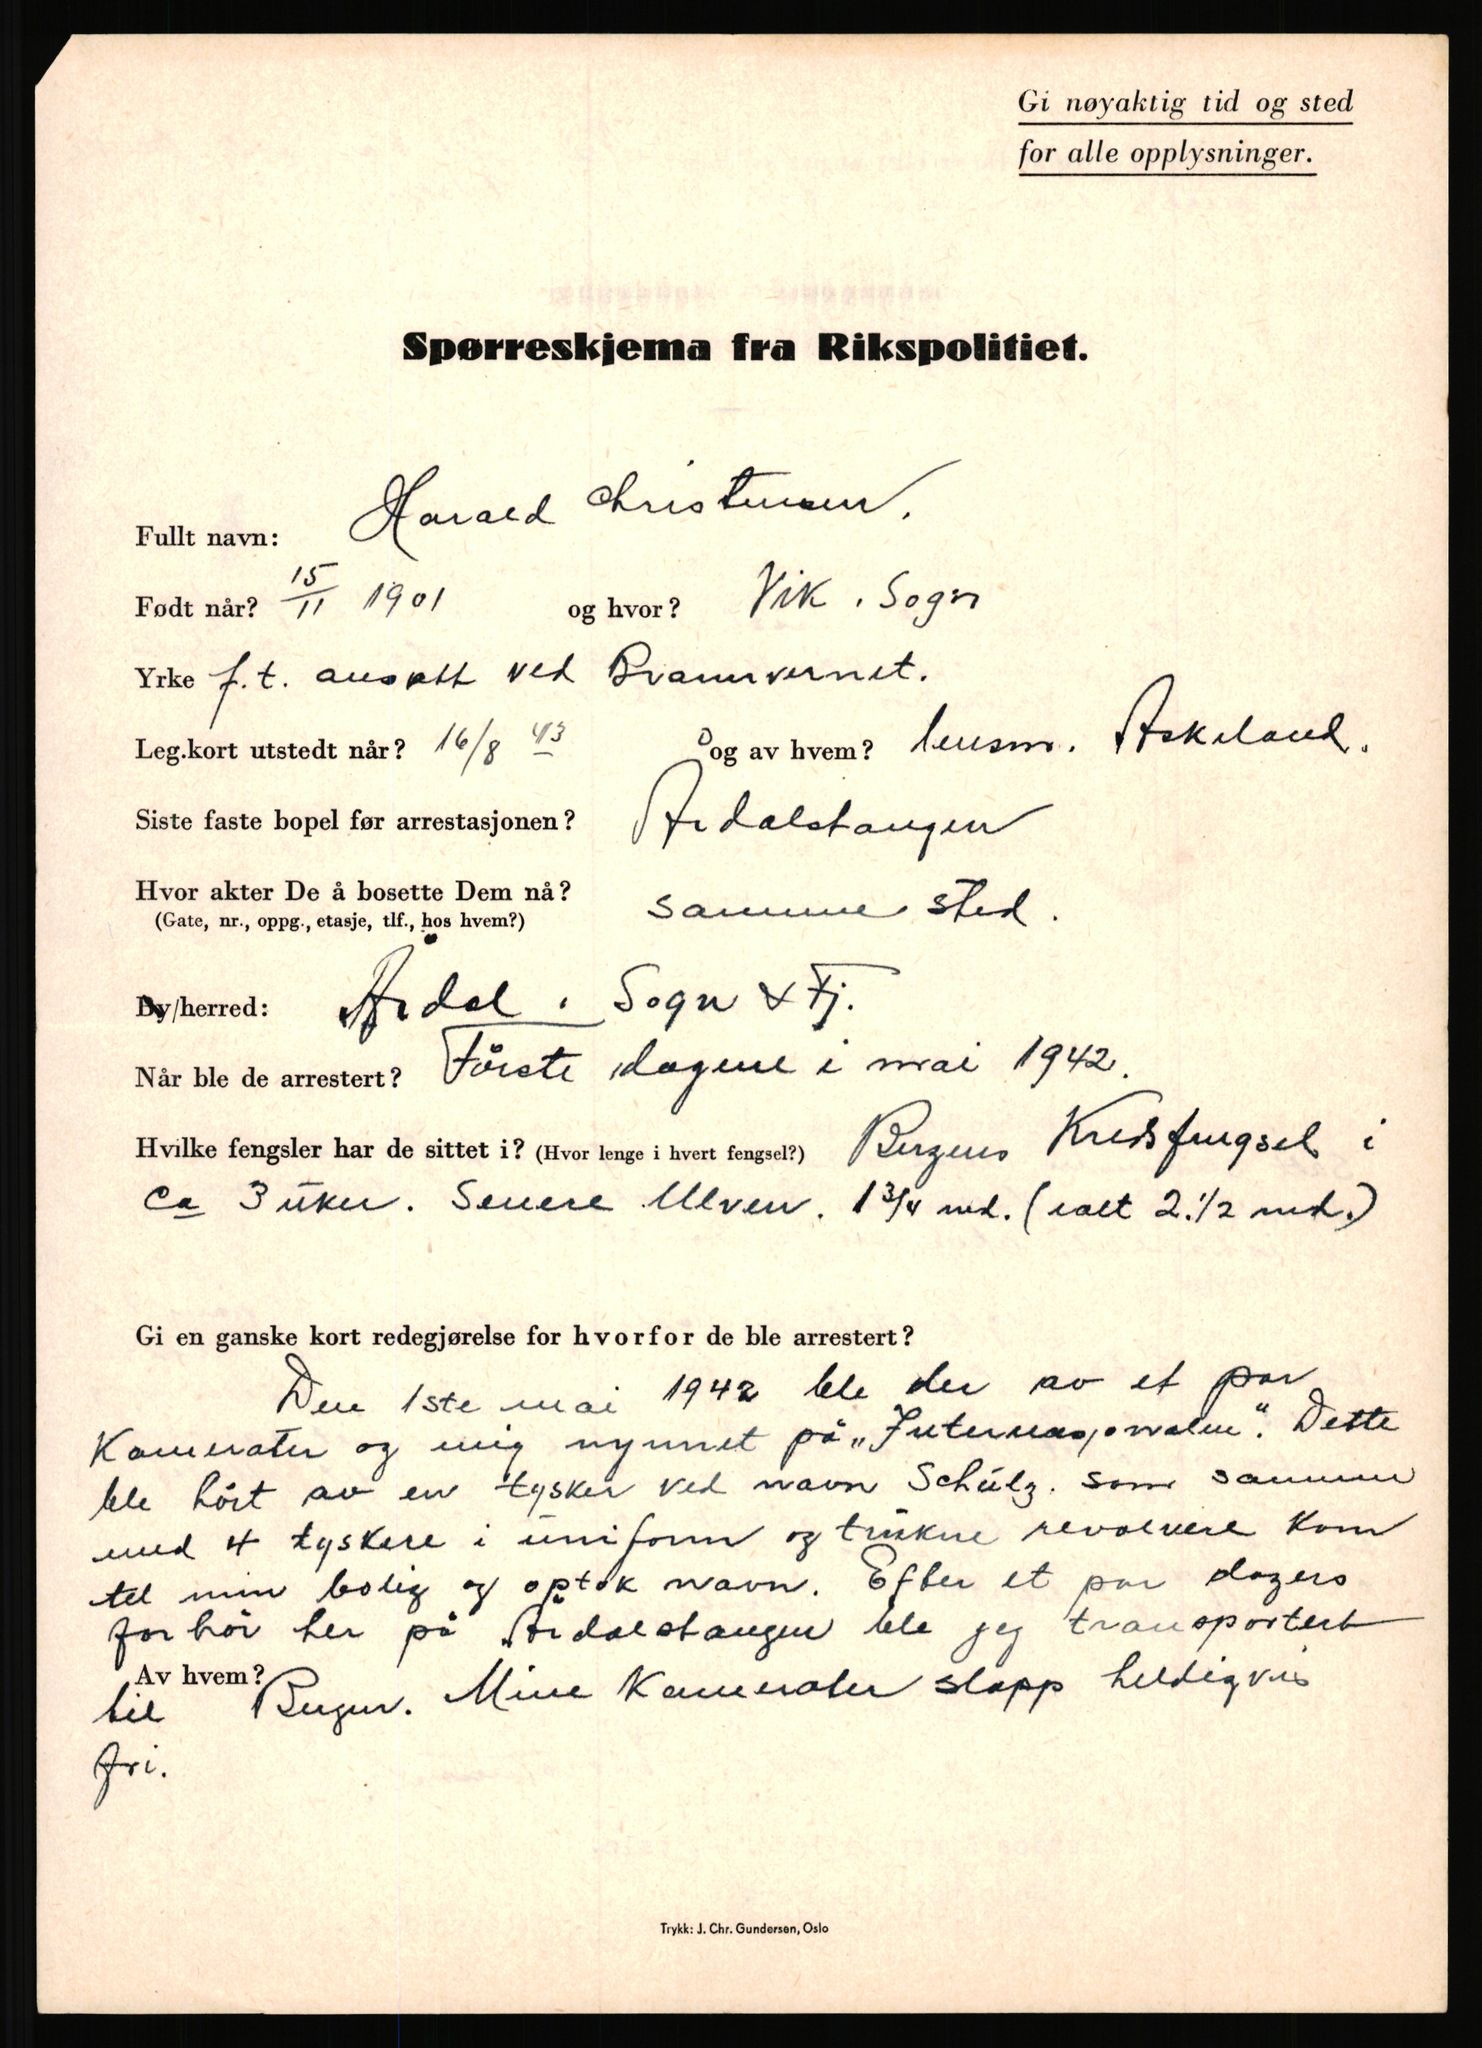 Gi nøyaktig tid og sted
for alle opplysninger.
Spørreskjema fra Rikspolitiet.
Fullt navn: Harald Christensen.
Født når? 15/11 1901 og hvor? Vik. Sogn
Yrke f.t. ansatt ved Brannvernet.
Leg.kort utstedt når? 16/8 43 og av hvem? lensm. Askeland.
Siste faste bopel før arrestasjonen? Årdalstangen
Hvor akter De å bosette Dem nå? samme sted.
(Gate, nr., oppg., etasje, tlf., hos hvem?)
By/herred: Årdal. Sogn & Fj.
Når ble de arrestert? Første dagene i mai 1942.
Hvilke fengsler har de sittet i? (Hvor lenge i hvert fengsel?) Bergens Kredsfengsel i
ca 3 uker. Senere Ulven. 1 3/4 md. (ialt 2.1/2 md.)
Gi en ganske kort redegjørelse for hvorfor de ble arrestert?
Den 1ste mai 1942 ble der av et par
Kamerater og mig nynnet på „Internasjonalen". Dette
ble hört av en tysker ved navn Schülz. som sammen
med 4 tyskere i uniform og trukne revolvere kom
til min bolig og optok navn. Efter et par dagers
forhör her på Årdalstangen ble jeg transportert
Av hvem?
til Bergen. Mine Kamerater slapp heldigvis
fri.
Trykk: J. Chr. Gundersen, Oslo